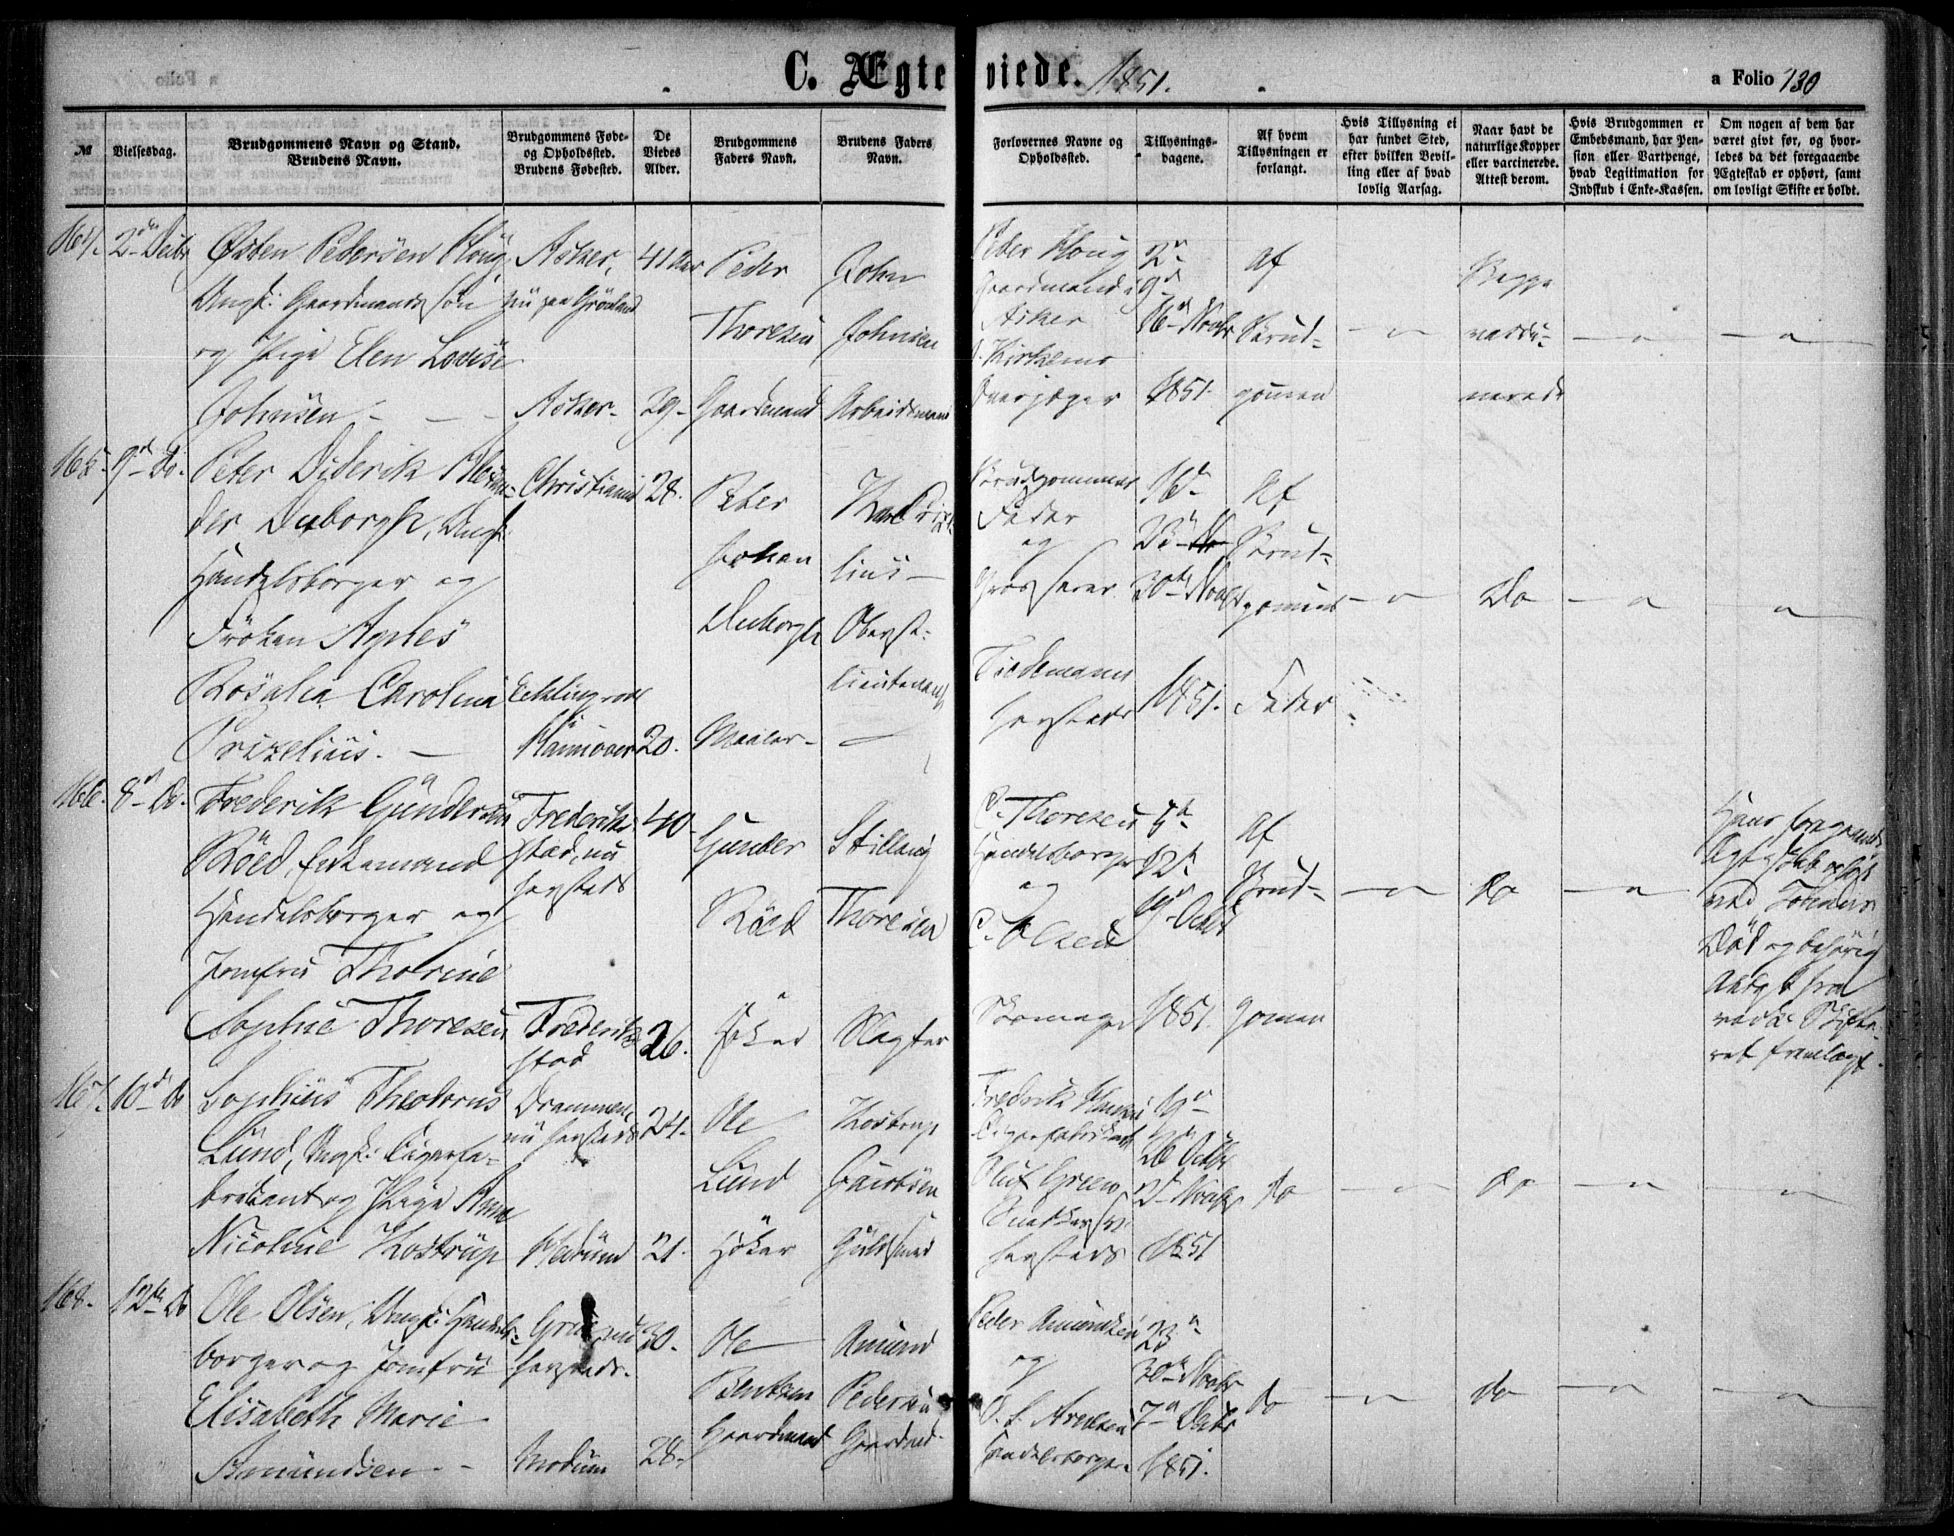 C. Ægteviede. 1851.
a Folio 130
№
Vielsesdag.
Brudgommens Navn og Stand.
Brudens Navn.
Brudgommens Føde-
og Opholdssted.
Brudens Fødested.
De
Viedes
Alder.
Brudgommens
Faders Navn.
Brudens Faders
Navn.
Forlovernes Navne og
Opholdssted.
Tillysnings-
dagene.
Af hvem
Tillysningen er
forlangt.
Hvis Tillysning ei
har fundet Sted,
efter hvilken Bevil-
ling eller af hvad
lovlig Aarsag.
Naar havt de
naturlige Kopper
eller vaccinerede.
Attest derom.
Hvis Brudgommen er
Embedsmand, har Pen-
sion eller Vartpenge,
hvad Legitimation for
Indskud i Enke-Kassen.
Om nogen af dem har
været givt før, og hvor-
ledes da det foregaaende
Ægteskab er ophørt, samt
om lovligt Skifte er holdt.
164. 2den Decbr
Østen Pedersen Houg
Ungk: Gaardmands søn
og Pige Elen Lovise
Johnsen
Asker,
nu paa Grønland
Asker
41 Aar
29
Peder
Thoresen
Gaardmand
John
Johnsen
Arbeidsmand
Peder Houg
Gaardmand i
Asker
Overjæger
2n
9d
16d Novbr
1851.
af
Brud-
gommen
Begge
vacci-
nerede
165 9d Do.
Peter Diderik Alexan-
der Duborgh, Ungk:
Handelsborger og
Frøken Agnes
Rosalia Carolina
Prizelius.
Christiania
Hannover
28.
20.
Peter
Johan
Duborgh
Maler
Karl Prize-
lius
Oberst-
lieutenant
Brudgommens
Fader
og
Grosserer
Tiedemann
hersteds
16d
23d
30te Novbr
1851.
Af
Brud-
gommens
Fader
Do
166. 8d Do.
Frederik Gundersen
Röed, Enkemand
Handelsborger og
Jomfru Thorine
Sophie Thoresen
Frederik-
stad, nu
hersteds
Frederik-
stad
40
26.
Gunder
Röed
Höker
Stillaug
Thoresen
Slagter
C. Thoresen
Handelsborger
og
C. Olsen
Skomager
5te
12te
19d Octbr
1851.
af
Brud-
gommen
do
Hans foregaaende
Ægteskab ophørt
ved Konens
Död og behørig
Attest fra
vedk. Skifte-
ret fremlagt.
167. 10d Do
Sophus Theodorus
Lund, Ungk: Cigarfa-
brikant og Pige Anne
Nicoline Kostrup
Drammen,
nu hersteds
Modum
24.
21.
Ole
Lund
Höker
Kostrup
Jacobsen
Guldsmed
Frederik Hansen
Cigarfabrikant
Oluf Green
Snedkersv.
hersteds
19n
26 Octbr
2d Novbr
1851
do
do
168. 12te Do
Ole Olsen, Ungk: Handels-
borger og Jomfru
Elisabeth Marie
Amundsen
nu
hersteds.
Modum
30.
28.
Ole
Bentsen
Gaardmand
Amund
Pedersen
Gaardmd.
Peder Amundsen
og
O. L. Arntzen
Handelsborgere
23n
30te Novbr
7n Decbr
1851.
do
do